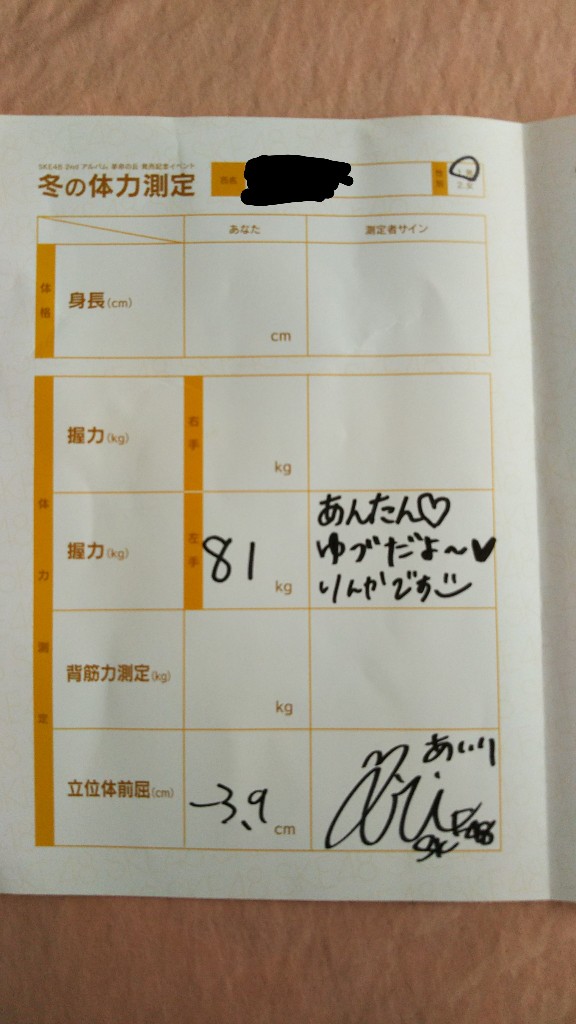 SKE48 2nd アルバム 革命の丘 発売記念イベント
冬の体力測定
氏名
性別
1.男
2.女
あなた
測定者サイン
体格
身長(cm)
cm
体力測定
握力(kg)
右手
kg
握力(kg)
左手
81
kg
あんたん♡
ゆづだよ〜♥
りんかです
背筋力測定(kg)
kg
立位体前屈(cm)
-3.9
cm
あいり
Airi
SKE48